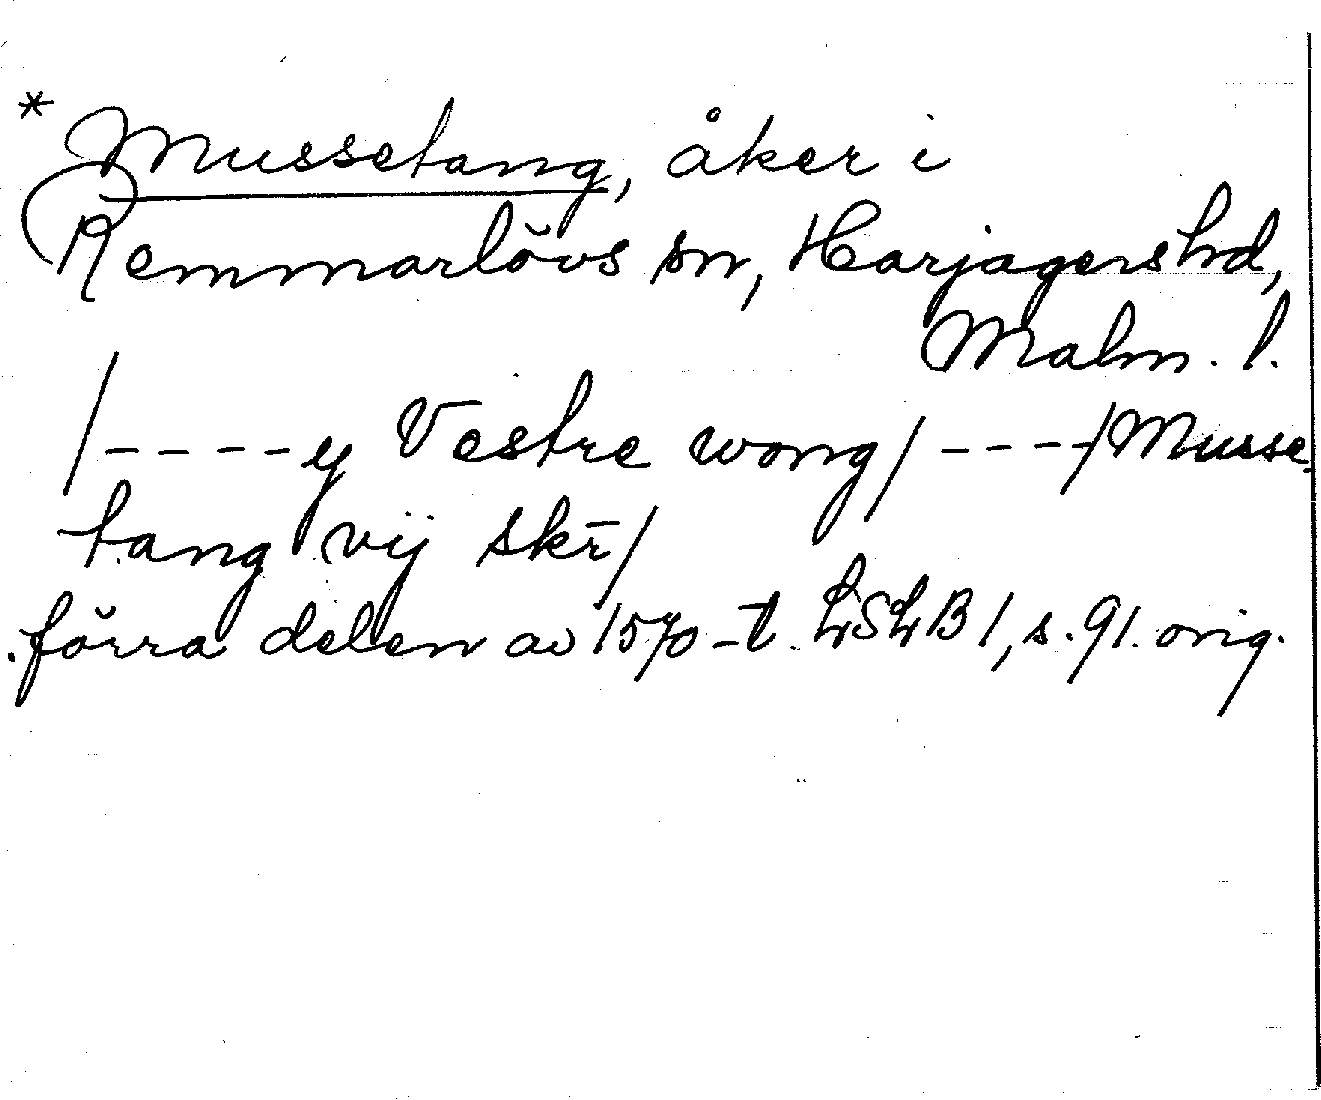 * Mussetang, åker i
Remmarlövs sn, Harjagers hd,
Malm. l.
/----y Vestre wong/----/Musse
tang vij skr̄/
förra delen av 1570-t. LSLB 1, s. 91. orig.